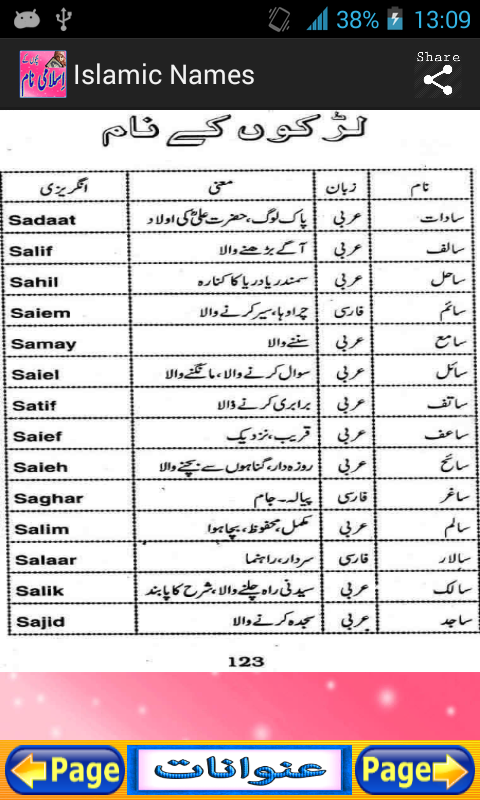 38% 13:09
اسلامی نام Islamic Names Share
لڑکوں کے نام
نام زبان معنی انگریزی
سادات عربی پاک لوگ، حضرت علیؓ کی اولاد Sadaat
سالف عربی آگے بڑھنے والا Salif
ساحل عربی سمندر یا دریا کا کنارہ Sahil
سائم فارسی چرواہا، سیر کرنے والا Saiem
سامع عربی سننے والا Samay
سائل عربی سوال کرنے والا، مانگنے والا Saiel
ساتف عربی برابری کرنے والا Satif
ساعف عربی قریب، نزدیک Saief
سائح عربی روزہ دار، گناہوں سے بچنے والا Saieh
ساغر فارسی پیالہ۔ جام Saghar
سالم عربی مکمل، محفوظ، بچا ہوا Salim
سالار فارسی سردار، راہنما Salaar
سالک عربی سیدنی راہ چلنے والا، شرح کا پابند Salik
ساجد عربی سجدہ کرنے والا Sajid
123
Page عنوانات Page